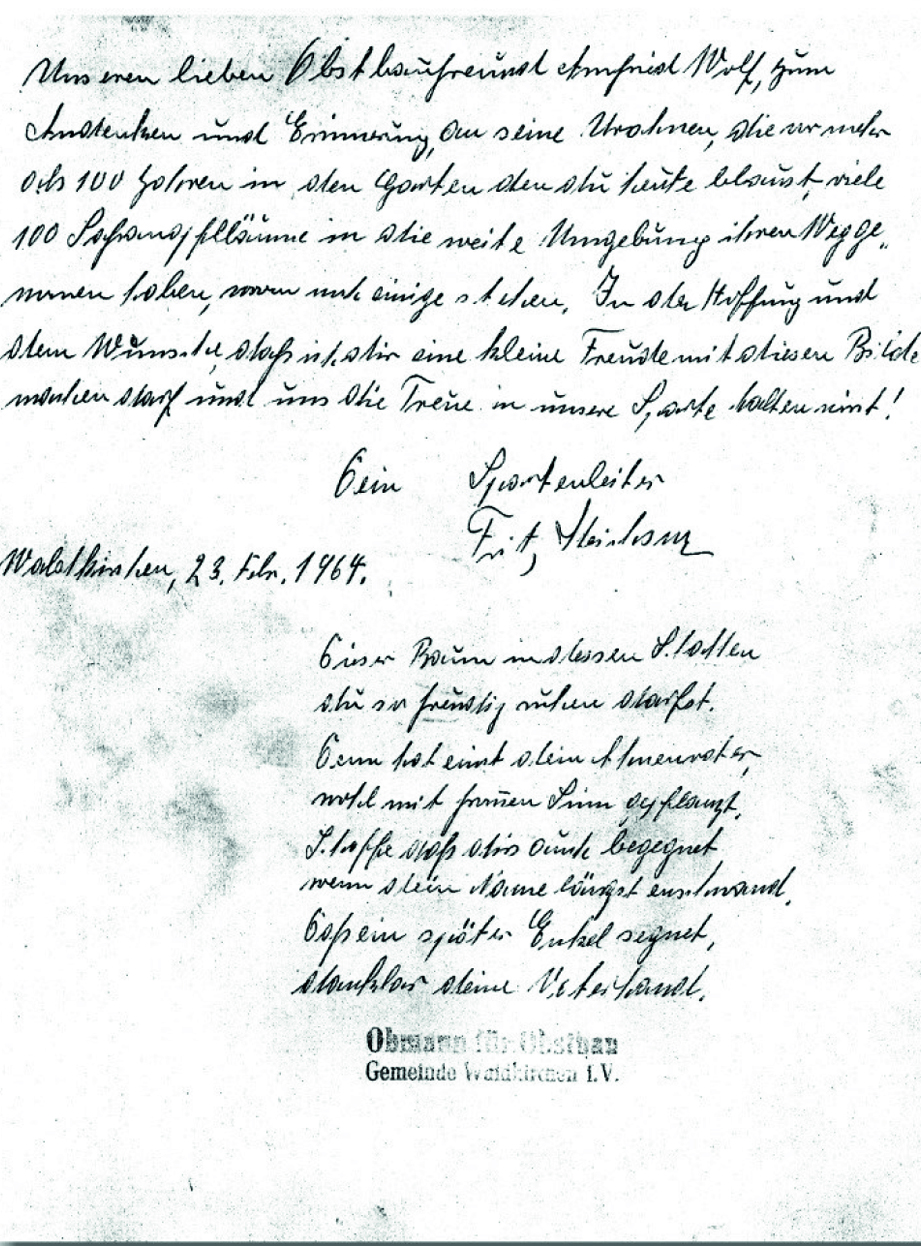 Unseren lieben Obstbaufreund Arnfried Wolf, zum
Andenken und Erinnerung, an seine Urahnen, die vor mehr
als 100 Jahren in den Garten den du heute baust, viele
100 in die weite Umgebung ihren Weg ge„
nomen haben, wovon noch einige stehen. In der Hoffung und
dem Wunsche, daß ich dir eine kleine Freude mit diesen Bilde
machen darf und uns die Treue in unsere Sparte halten wirst!
Dein Spartenleiter
Fritz
Waldkirchen, 23. Febr. 1964.
Dieser Baum in dessen Schatten
du so freudig ruhen darfst.
Denn hat einst dein Ahnenvater,
wohl mit fromen Sinn gepflanzt.
I. hoffe daß dirs auch begegnet,
wenn dein Name längst enschwand,
Daß ein später Enkel segnet,
dankbar deine Veterhand.
Obmann für Obstbau
Gemeinde Waldkirchen i.V.